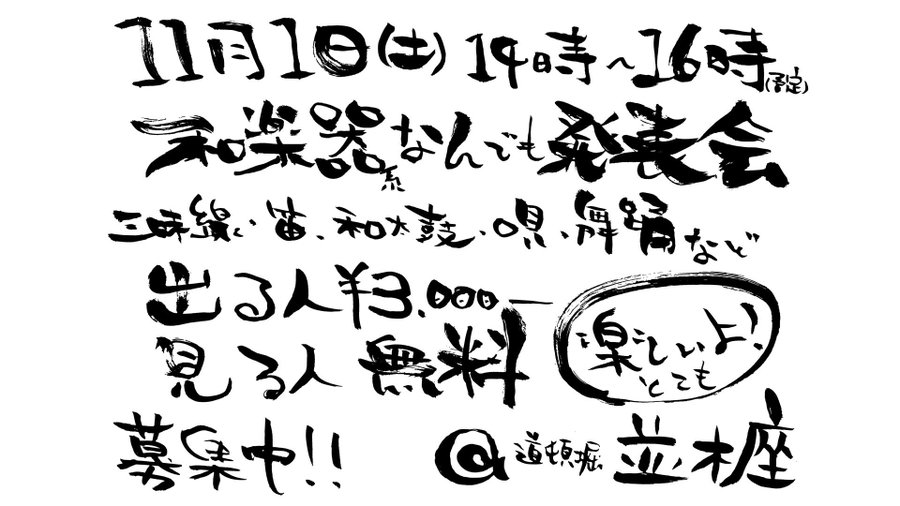 11月1日(土) 14時〜16時(予定)
和楽器系なんでも発表会
三味線、笛、和太鼓、唄、舞踊など
出る人¥3,000ー
見る人 無料
楽しいよ!
とても
募集中!!
@道頓堀 並木座